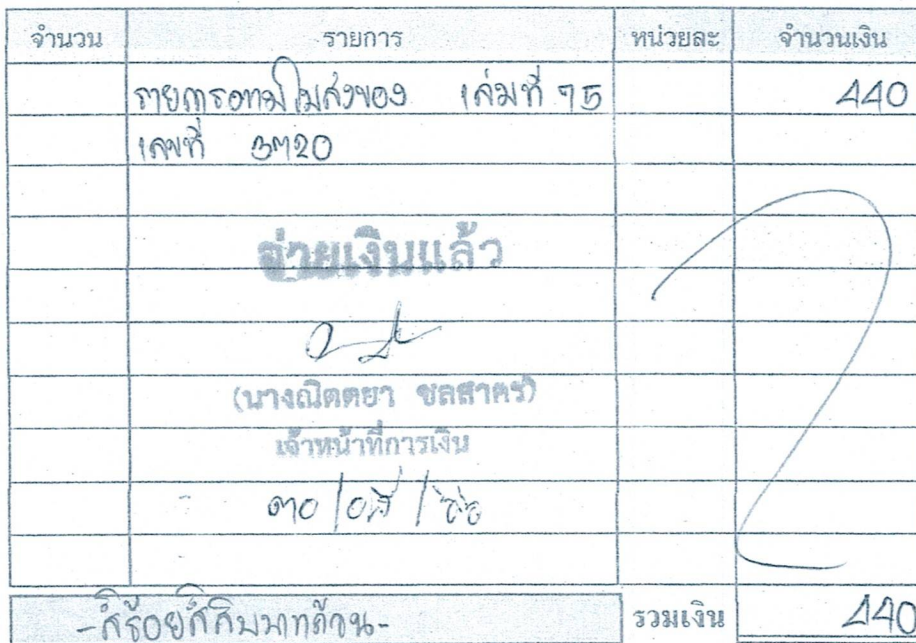 จำนวน รายการ หน่วยละ จำนวนเงิน
รายการตามใบส่งของ เล่มที่ 75 440
เลขที่ 3720
จ่ายเงินแล้ว
(นางณิตตยา ชลสาคร)
เจ้าหน้าที่การเงิน
-สี่ร้อยสี่สิบบาทถ้วน- รวมเงิน 440